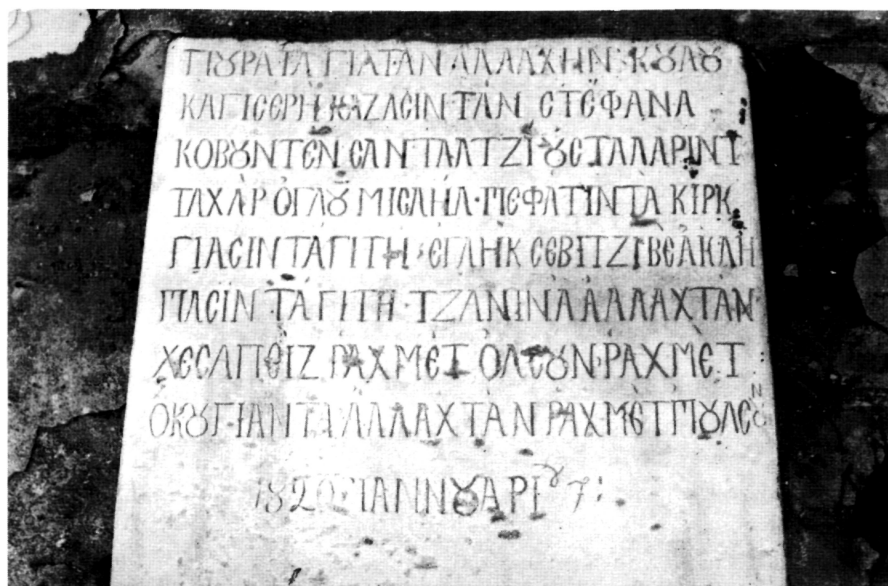 ΓΙȢΡΑΤΑ ΓΙΑΤΑΝ ΑΛΛΑΧΗΝ ΚȢΛȢ
ΚΑΓΙСΕΡΗ ΚΑΖΑСΙΝΤΑΝ СΤΕΦΑΝΑ
ΚΟΒȢΝΤΕΝ СΑΝΤΑΛΤΖΙ ȢСΤΑΛΑΡΙΝΤ
ΤΑΧΑΡΟΓΛȢ ΜΙСΑΗΛ·ΠΕΦΑΤΙΝΤΑ ΚΙΡΚ
ΓΙΑСΙΝΤΑΓΙΤΗ·ΕΓΛΗΚ СΕΒΙΤΖΙ ΒΕ ΑΚΛΗ
ΠΑСΙΝΤΑΓΙΤΗ·ΤΖΑΝΙΝΑ ΑΛΛΑΧΤΑΝ
ΧΕСΑΠСΙΖ ΡΑΧΜΕΤ ΟΛСȢΝ·ΡΑΧΜΕΤ
ΟΚΟΥΓΙΑΝΤΑ ΑΛΛΑΧΤΑΝ ΡΑΧΜΕΤ ΠȢΛСȢΝ
1820 ΓΙΑΝΝȢΑΡΙȢ 7: